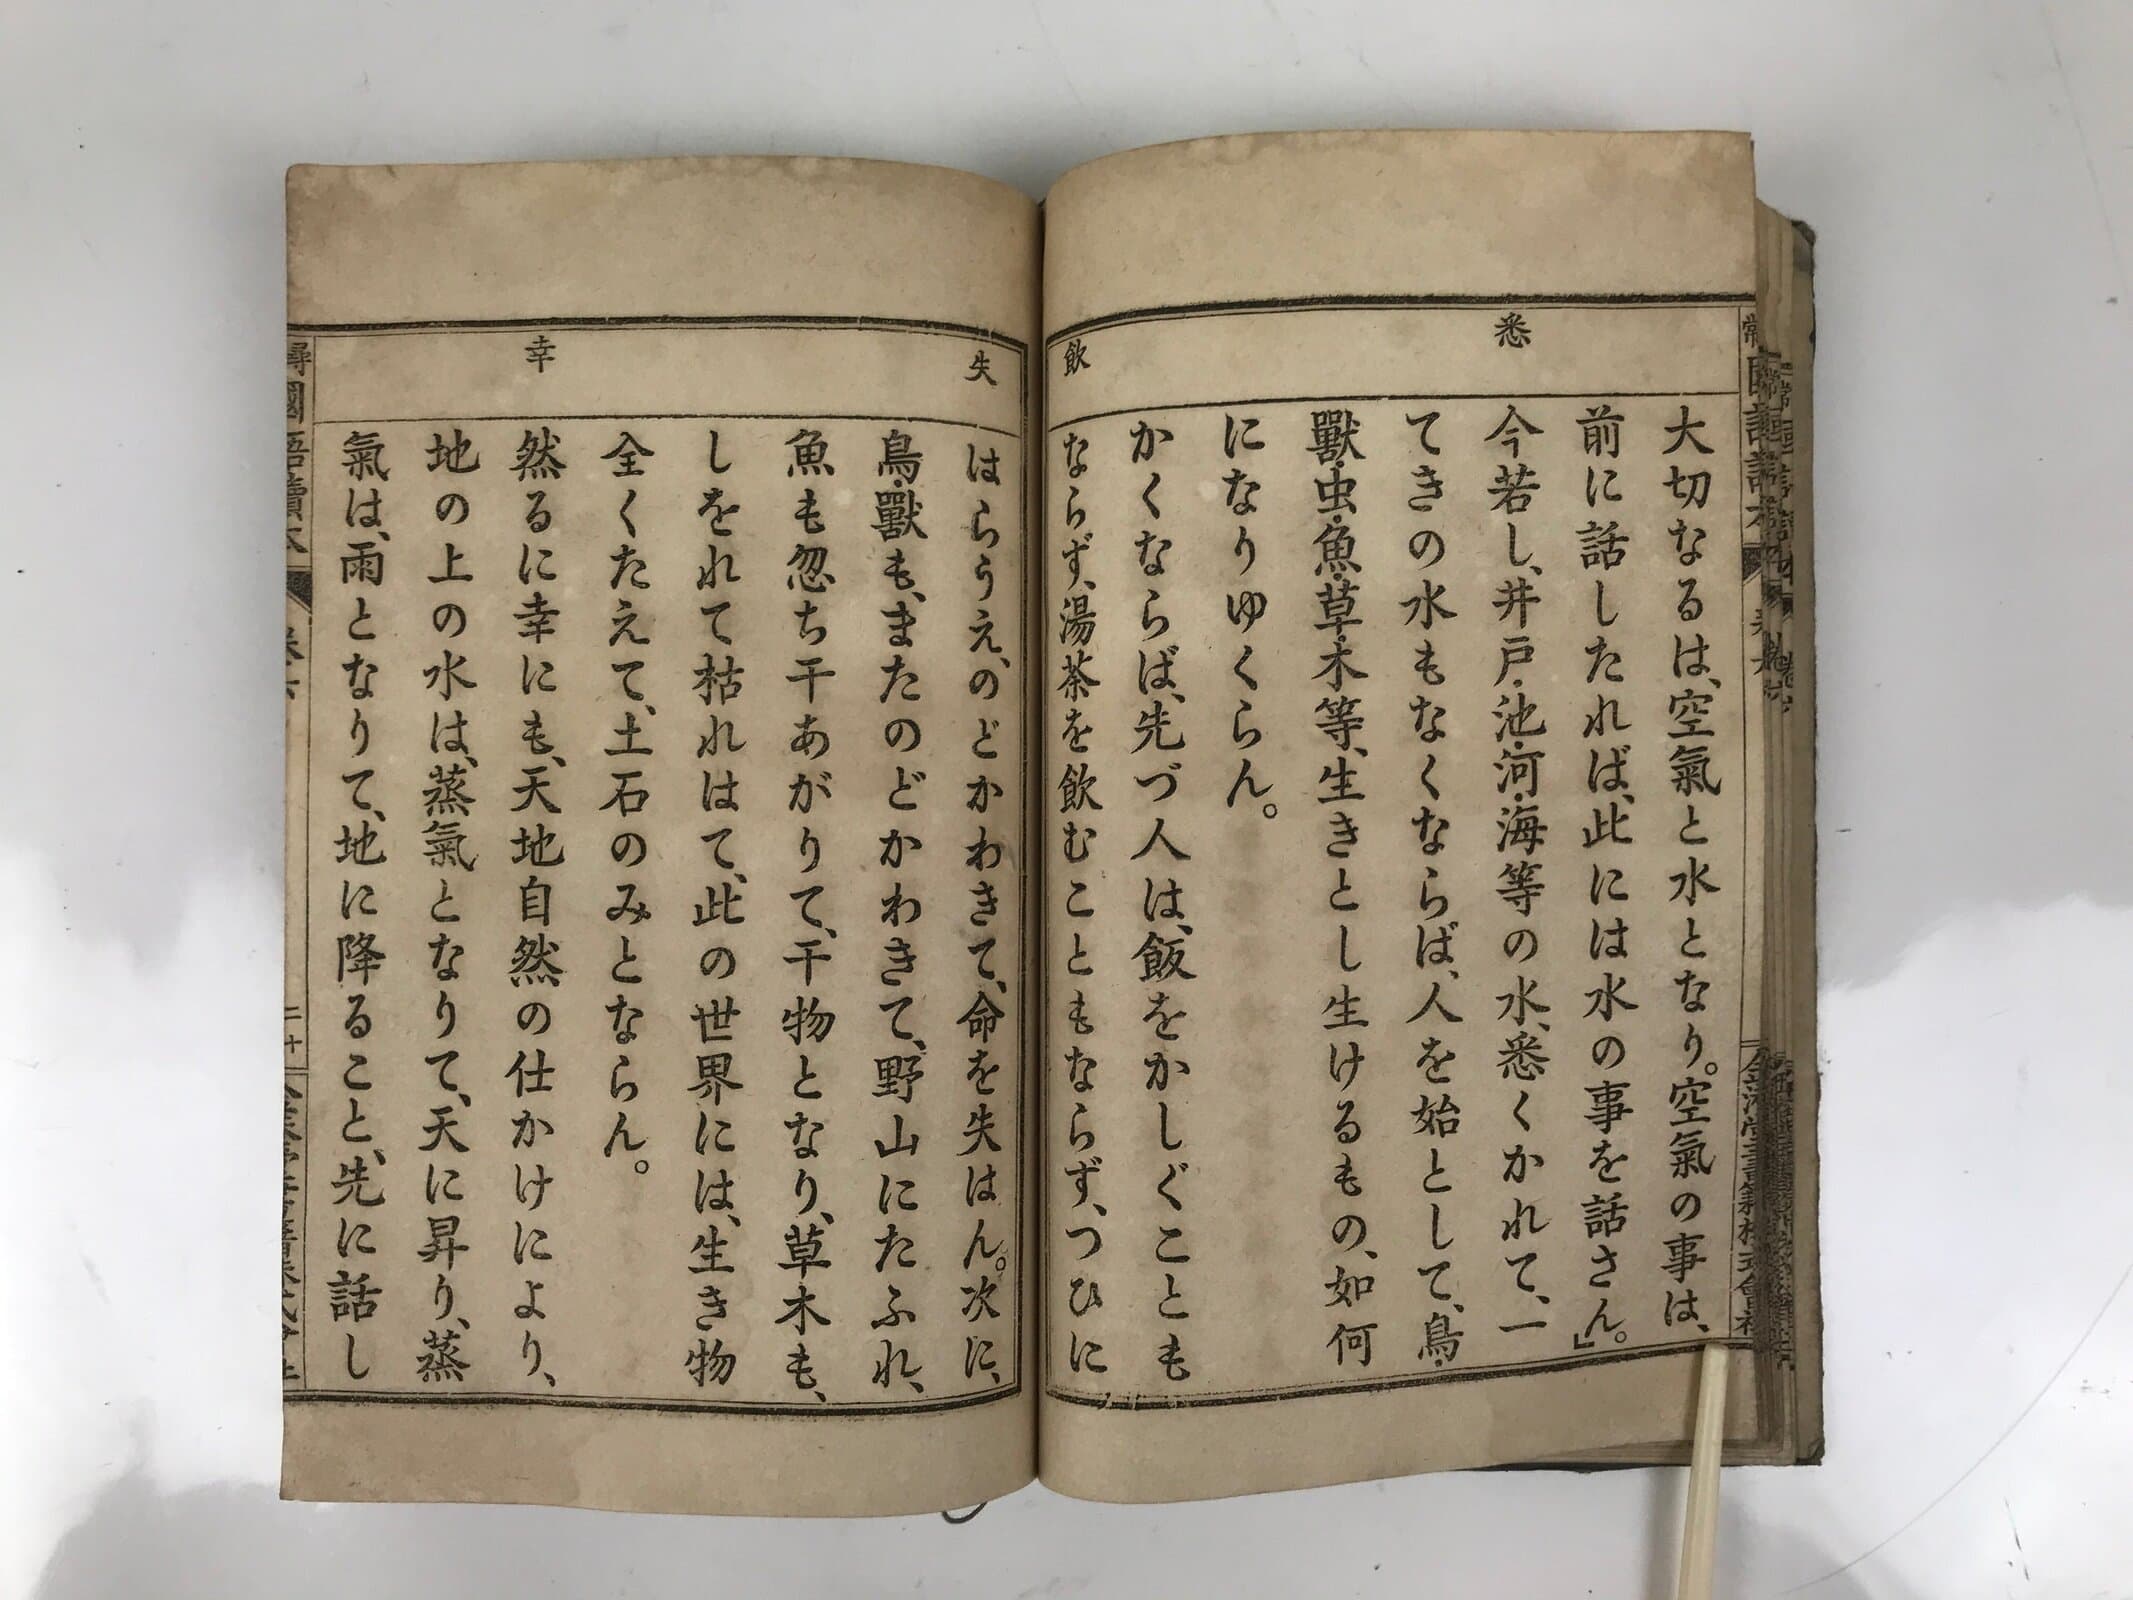 悉
飲
大切なるは、空氣と水となり。空氣の事は、
前に話したれば、此には水の事を話さん。」
今若し、井戸・池・河・海等の水、悉くかれて、一
てきの水もなくならば、人を始として、鳥・
獸・虫・魚・草・木等、生きとし生けるもの、如何
になりゆくらん。
かくならば、先づ人は、飯をかしぐことも
ならず、湯茶を飲むこともならず、つひに
失
幸
はらうえ、のどかわきて、命を失はん。次に、
鳥・獸も、またのどかわきて、野山にたふれ、
魚も忽ち干あがりて、干物となり、草木も、
しをれて枯れはて、此の世界には、生き物
全くたえて、土石のみとならん。
然るに幸にも、天地自然の仕かけにより、
地の上の水は、蒸氣となりて、天に昇り、蒸
氣は、雨となりて、地に降ること、先に話し
國語讀本
二十